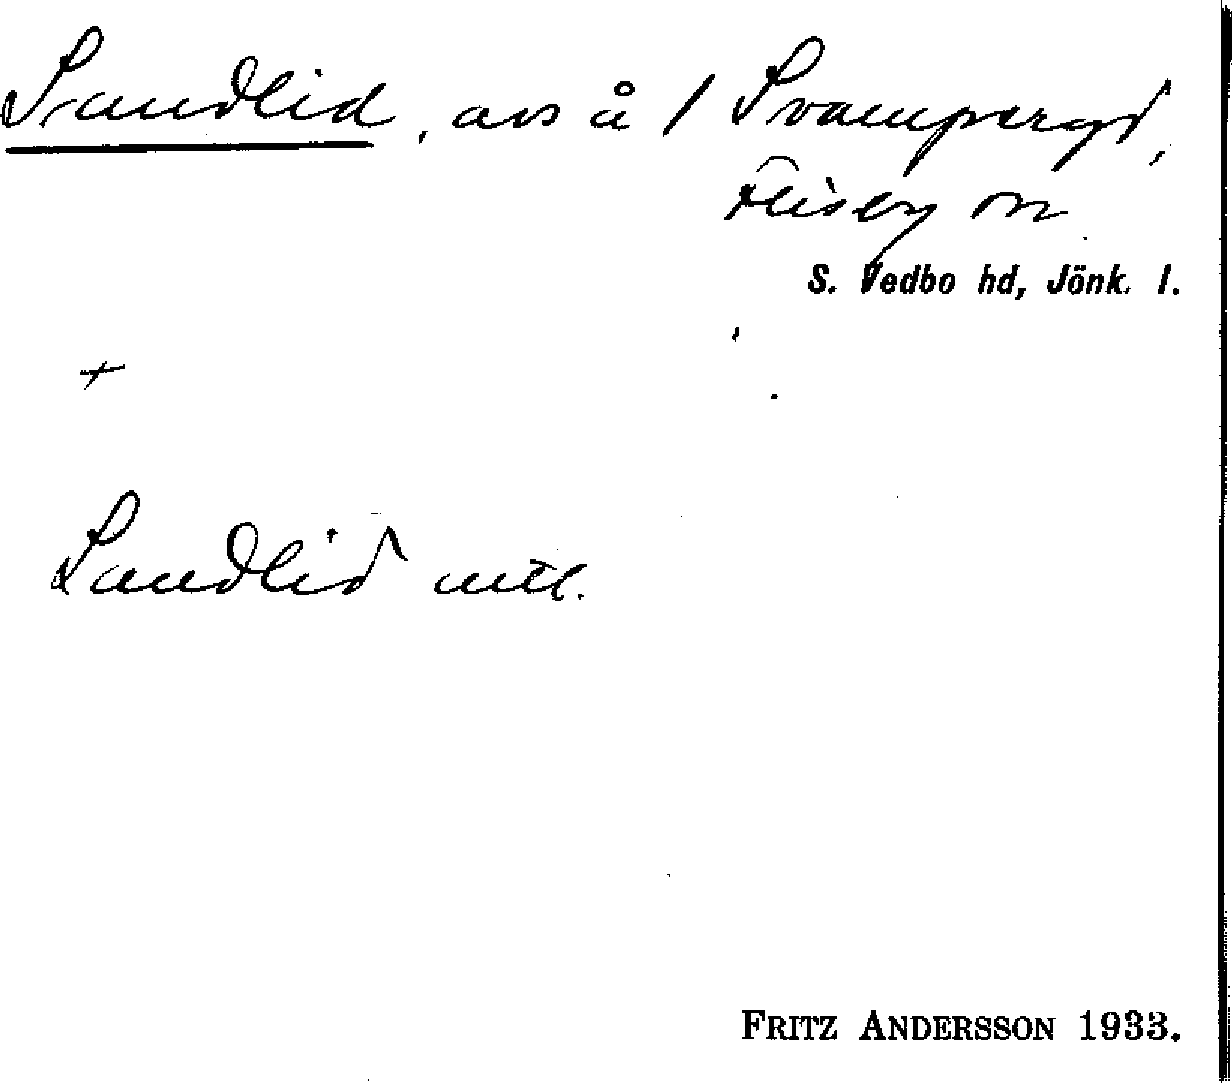 Sandlid, avs å / Svampergd,
Flisby sn
S. Vedbo hd, Jönk. l.
+
Sandlid
FRITZ ANDERSSON 1933.